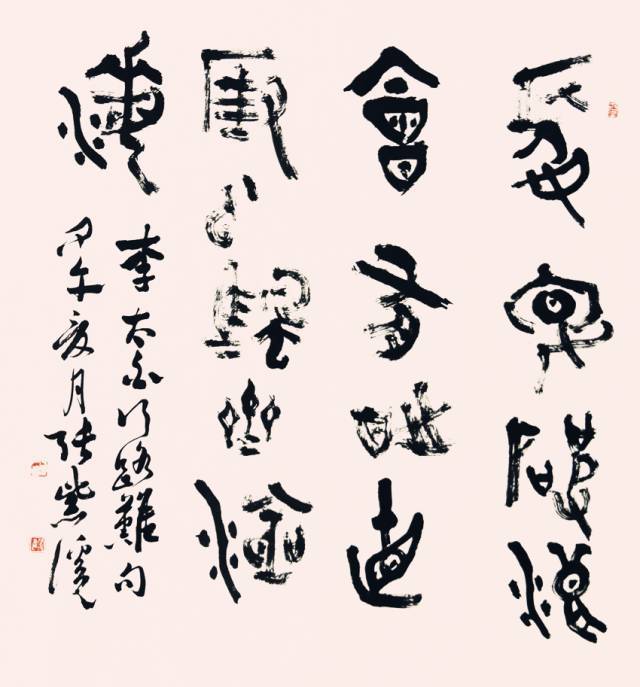 長風破浪
會有時直
挂雲帆濟滄
海
李太白行路難句
甲午夏月張紫溪